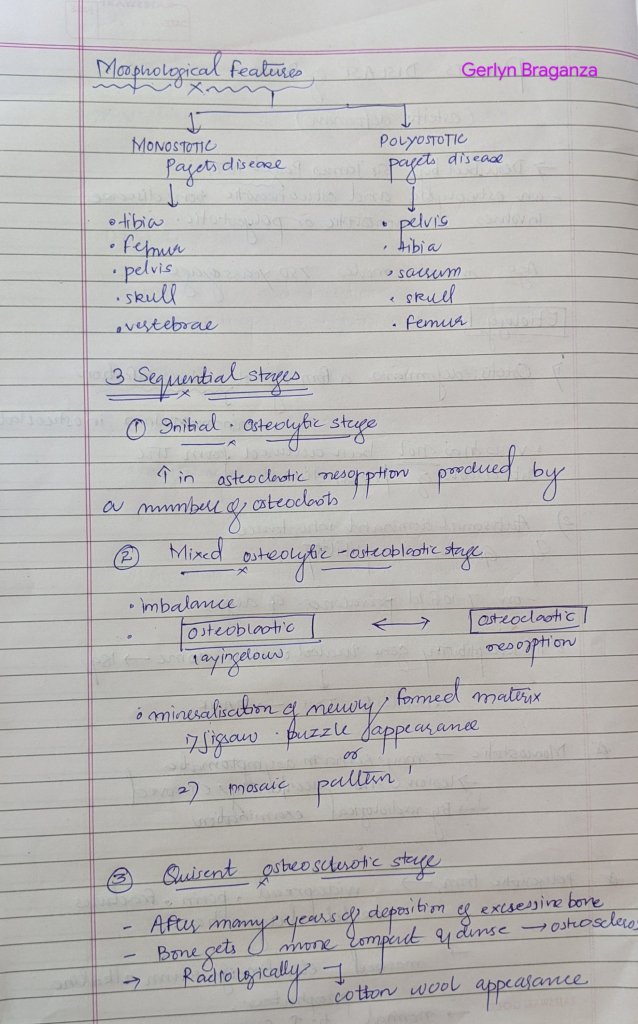 Morphological Features
Gerlyn Braganza
MONOSTOTIC
Pagets disease
POLYOSTOTIC
pagets disease
• tibia
• Femur
• pelvis
• skull
• vertebrae
• pelvis
• tibia
• sacrum
• skull
• Femur
3 Sequential stages
① Initial . osteolytic stage
↑ in osteoclastic resorption produced by
a number of osteoclasts
② Mixed osteolytic - osteoblastic stage
• imbalance
• osteoblastic ↔ osteoclastic
layingdown resorption
• mineralisation of newly formed materix
1) Jigsaw . puzzle appearance
or
2) mosaic pattern
③ Quisent osteosclerotic stage
- After many years of deposition of excsessine bone
- Bone gets more compact & dense → osteosclero
→ Radiologically
cotton wool appearance